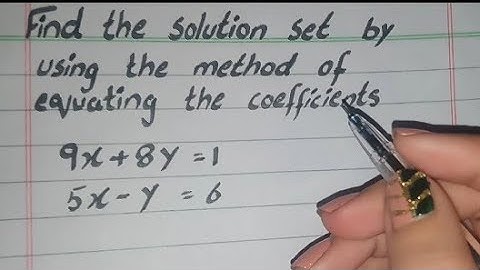 Find the solution set by
using the method of
equating the coefficients
9x + 8y = 1
5x - y = 6